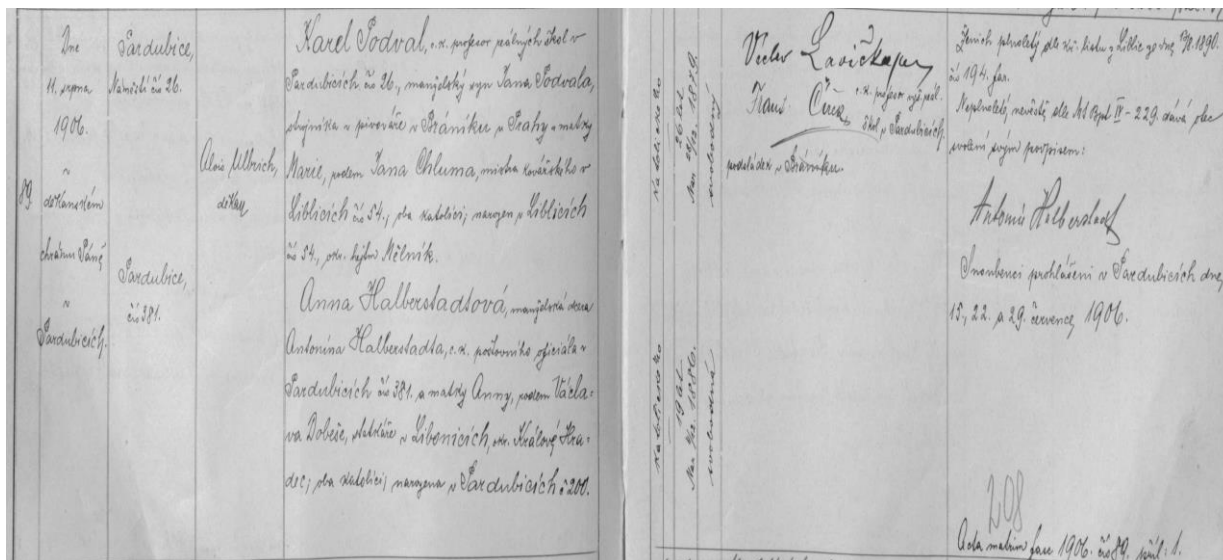 89.
Dne
11. srpna
1906.
v
děkanském
chrámu Páně
v
Pardubicích.
Pardubice,
Náměstí čís 26.
Pardubice,
čís 381.
Alois Ulbrich,
děkan
Karel Podval, c.k. profesor reálných škol v
Pardubicích čís 26., manželský syn Jana Podvala,
strojníka v pivováře v Bráníku u Prahy a matky
Marie, rodem Jana Chluma, mistra kovářského v
Liblicích čís 54., oba katolíci; narozen v Liblicích
čís 54., okr. hejtm Mělník.
Anna Halberstadtová, manželská dcera
Antonína Halberstadta, c.k. poštovního oficiála v
Pardubicích čís 381. a matky Anny, rodem Václa-
va Dobeše, statkáře v Libčanicích, okr. Králové Hra-
dec; oba katolíci; narozena v Pardubicích č 200.
Katolického
26 let
1879.
svobodný
Katolického
19 let
1886.
svobodná
Václav Lavička
podsládek v Bráníku.
Frant. Čeněk
c.k. profesor vyš. reál.
škol v Pardubicích
Ženich plnoletý dle kř. listu z Liblic ze dne 1890.
čís 194. far.
Neplnoleté nevěstě dle Mt Bapt IV - 229. dává plno
volení svým podpisem:
Antonín Halberstadt
Snoubenci prohlášeni v Pardubicích dne
15., 22. a 29. července 1906.
208
Acta matrim fasc 1906. čís 89. příl: 1.